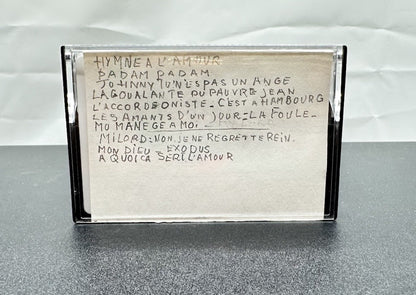 HYMNE A L'AMOUR
PADAM PADAM
JOHNNY TU N'ES PAS UN ANGE
LA GOUALANTE DU PAUVRE JEAN
L'ACCORDEONISTE - C'EST A HAMBOURG
LES AMANTS D'UN JOUR - LA FOULE -
MON MANEGE A MOI
MILORD : NON JE NE REGRETTE REIN.
MON DIEU - EXODUS
A QUOI CA SERT L'AMOUR